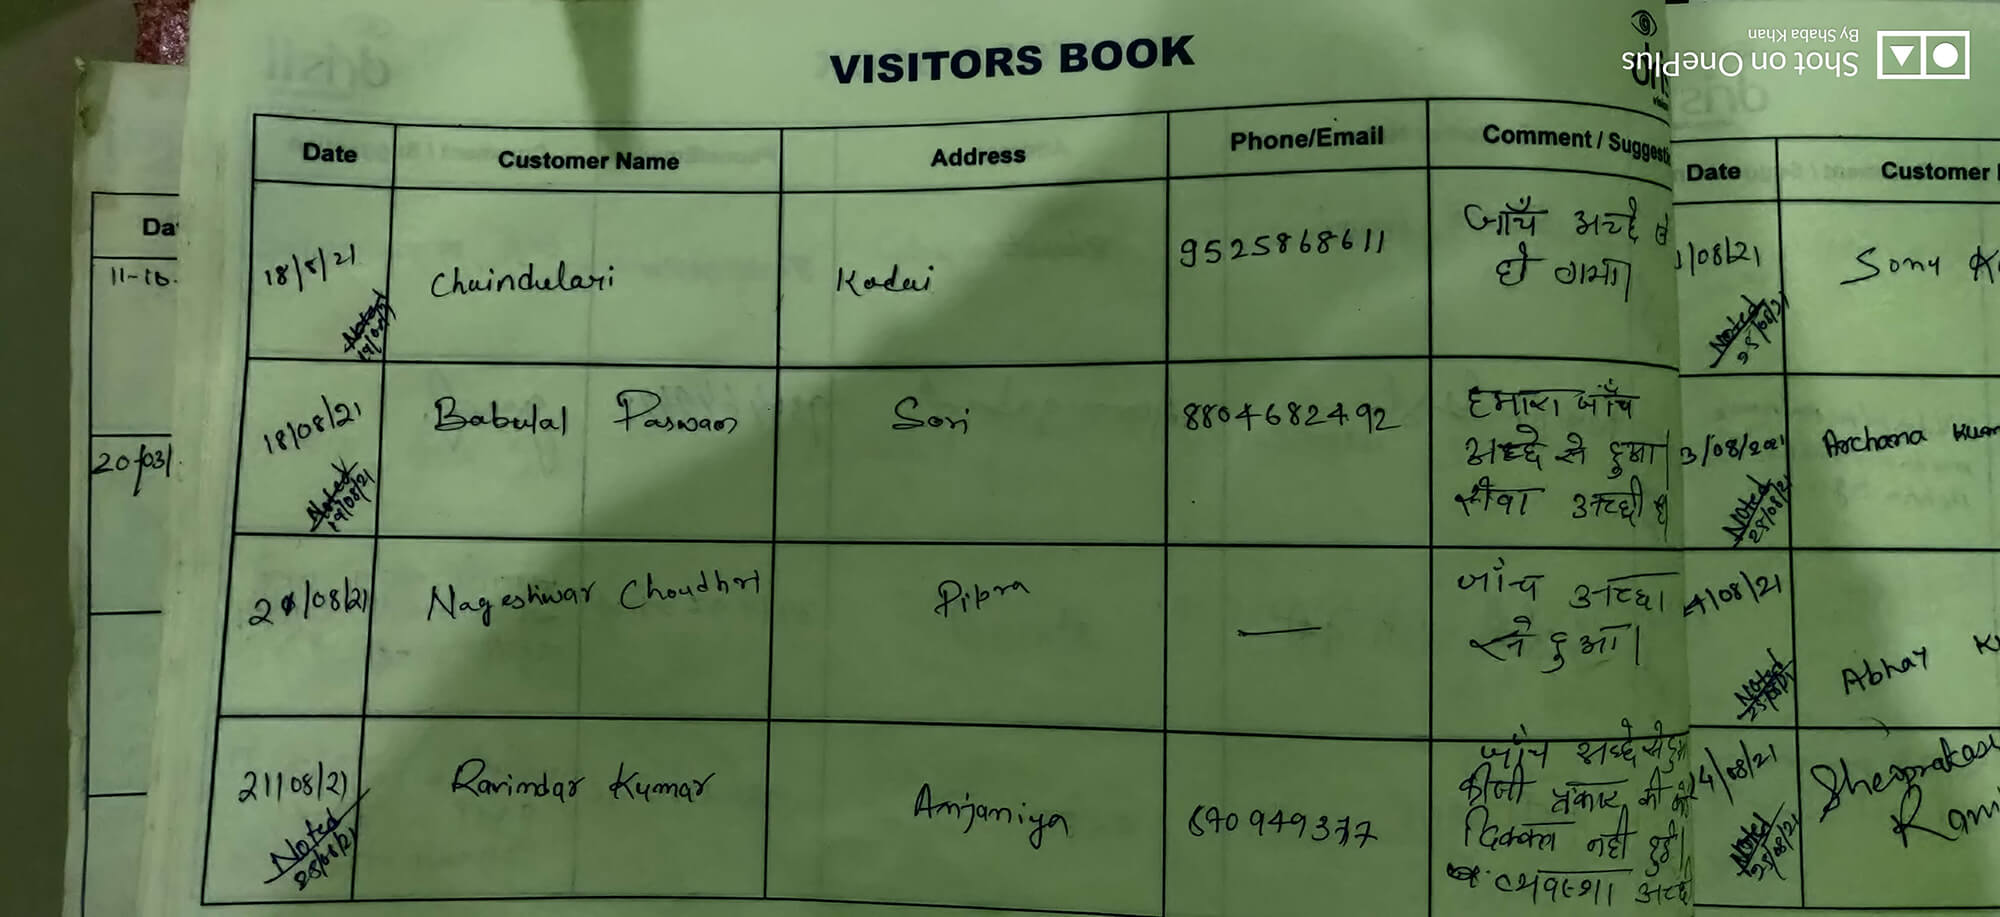 VISITORS BOOK
Shot on OnePlus
By Shaba Khan
Date
Customer Name
Address
Phone/Email
Comment / Suggesti
18/8/21
Noted
19/08/21
Chaindulari
Kadai
9525868611
जाँच अच्छे से
हो गया।
18/08/21
Noted
19/08/21
Babulal Paswan
Sori
8804682492
हमारा जाँच
अच्छे से हुआ।
सेवा अच्छी है
21/08/21
Nageshwar Choudhri
Pipra
—
जाँच अच्छा
से हुआ।
21/08/21
Noted
25/08/21
Ravindar Kumar
Anjaniya
670949377
जाँच अच्छे से हुआ
कीसी प्रकार की को
दिक्कत नही हुई।
व्यवस्था अच्छ
Da
11-10.
20/03/
Date
Customer
1/08/21
Noted
25/08/21
Sony K
3/08/2021
Noted
25/08/21
Archana Kum
4/08/21
Noted
25/08/21
Abhay K
14/08/21
Noted
25/08/21
Sheoprakash
Ram